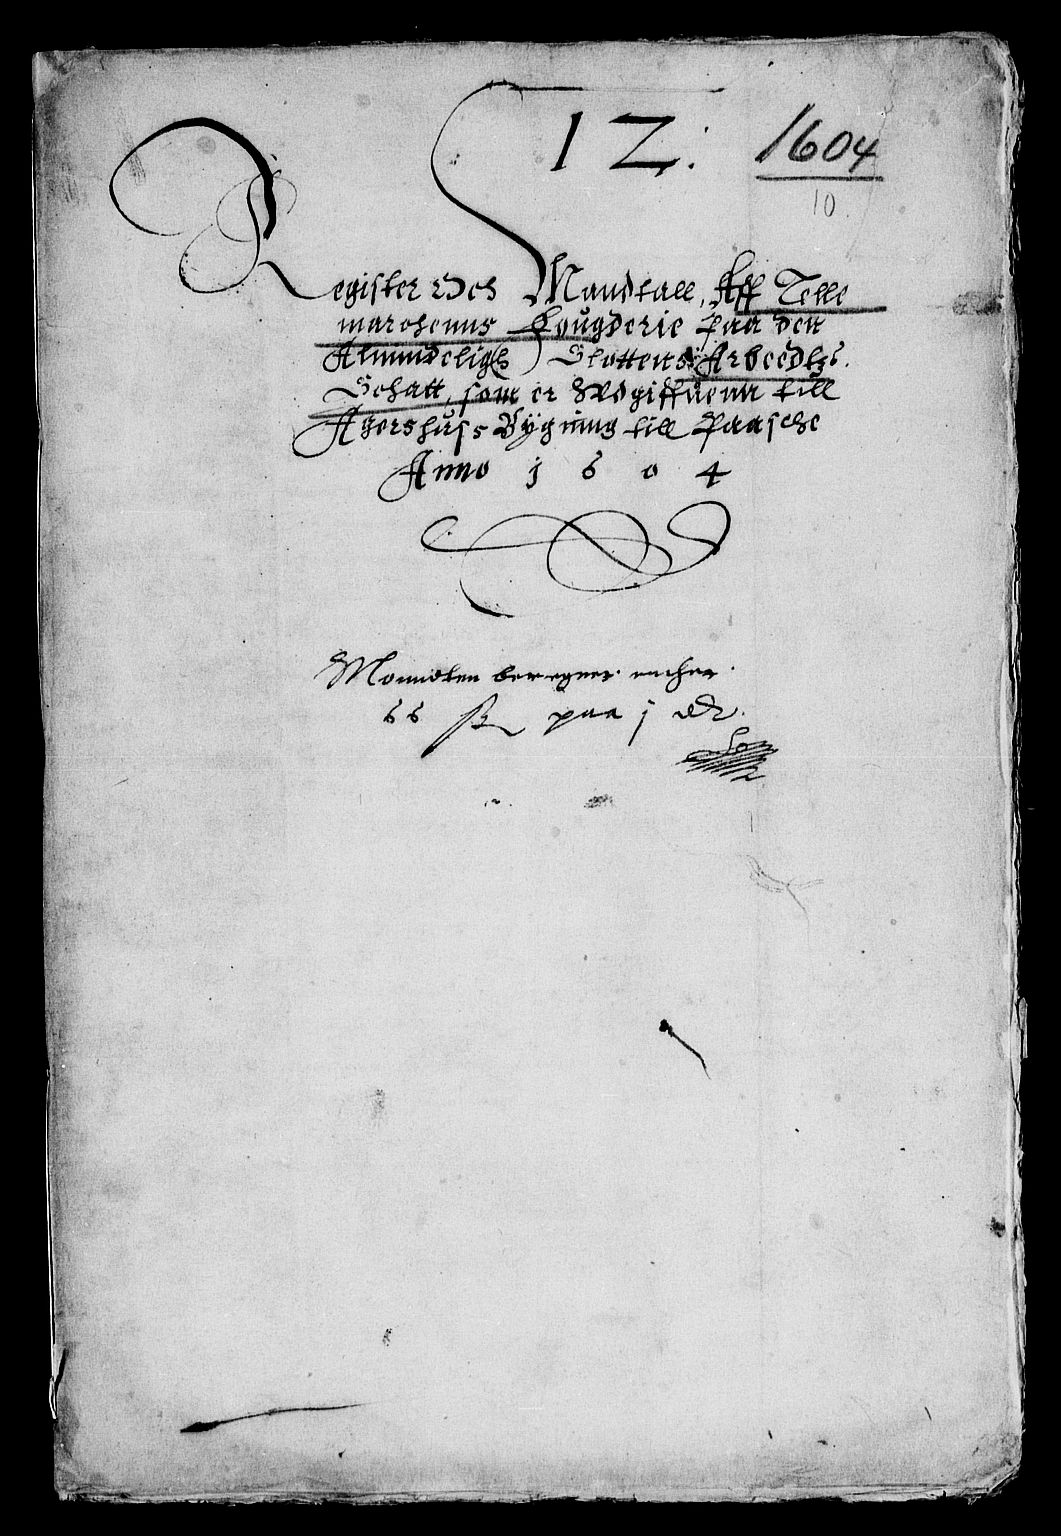 12:
1604
10.
Register Och Mandtall, Aff Telle
marchenns Fougderie Paa den
Almindelig Slottens Arbeedtz
Schatt, som er Vdgiffuenn till
Agershuss Bygning till Paasche
Anno 1604
Monndten beregner
66 ß paa j dlr.